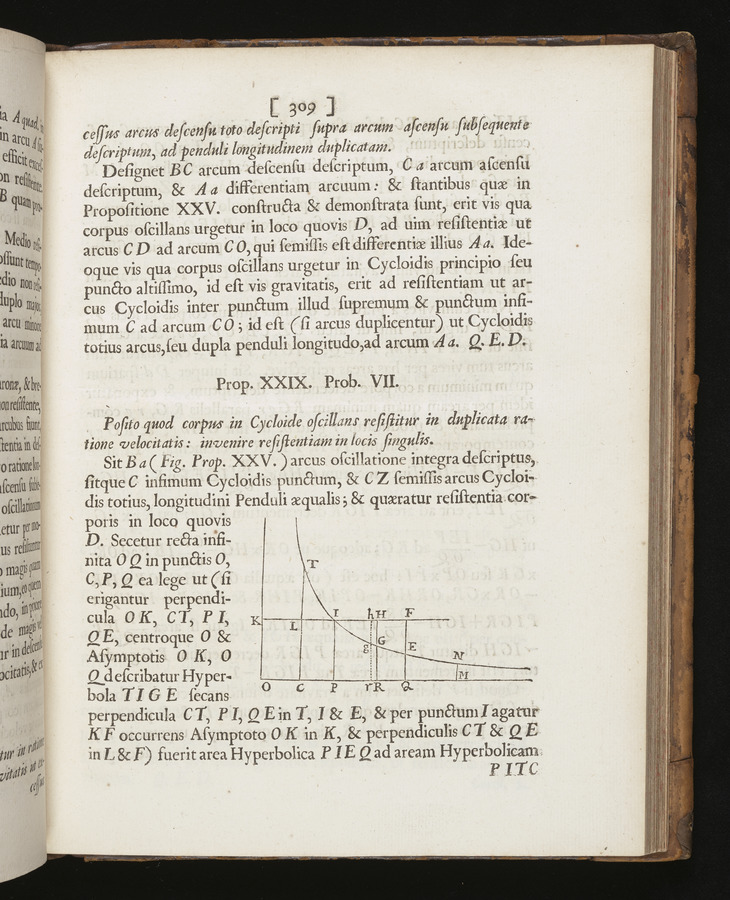 [ 309 ]
ceſſus arcus deſcenſu toto deſcripti ſupra arcum aſcenſu ſubſequente
deſcriptum, ad penduli longitudinem duplicatam.
Deſignet BC arcum deſcenſu deſcriptum, C a arcum aſcenſu
deſcriptum, & A a differentiam arcuum: & ſtantibus quæ in
Propoſitione XXV. conſtructa & demonſtrata ſunt, erit vis qua
corpus oſcillans urgetur in loco quovis D, ad uim reſiſtentiæ ut
arcus C D ad arcum C O, qui ſemiſſis eſt differentiæ illius A a. Ide-
oque vis qua corpus oſcillans urgetur in Cycloidis principio ſeu
puncto altiſſimo, id eſt vis gravitatis, erit ad reſiſtentiam ut ar-
cus Cycloidis inter punctum illud ſupremum & punctum infi-
mum C ad arcum CO; id eſt (ſi arcus duplicentur) ut Cycloidis
totius arcus, ſeu dupla penduli longitudo, ad arcum A a. Q. E. D.
Prop. XXIX. Prob. VII.
Poſito quod corpus in Cycloide oſcillans reſiſtitur in duplicata ra-
tione velocitatis: invenire reſiſtentiam in locis ſingulis.
Sit B a (Fig. Prop. XXV.) arcus oſcillatione integra deſcriptus,
ſitque C infimum Cycloidis punctum, & C Z ſemiſſis arcus Cycloi-
dis totius, longitudini Penduli æqualis; & quæratur reſiſtentia cor-
poris in loco quovis
D. Secetur recta infi-
nita O Q in punctis O,
C, P, Q ea lege ut (ſi
erigantur perpendi-
cula O K, C T, P I,
Q E, centroque O &
Aſymptotis O K, O
Q deſcribatur Hyper-
bola T I G E ſecans
T
K L I h H F
g G E
N
M
O C P r R Q
perpendicula C T, P I, Q E in T, I & E, & per punctum I agatur
K F occurrens Aſymptoto O K in K, & perpendiculis C T & Q E
in L & F) fuerit area Hyperbolica P I E Q ad aream Hyperbolicam
P I T C